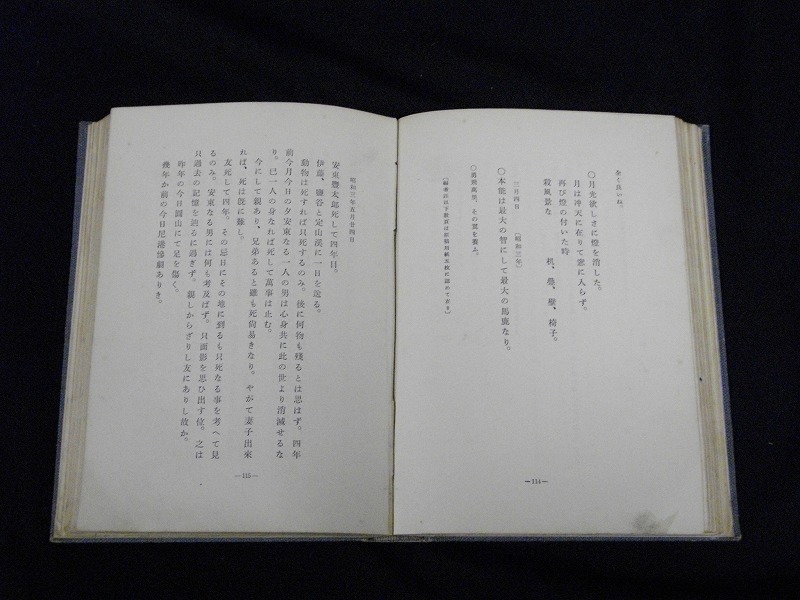 全く良いね。
〇月光欲しさに燈を消した。
月は冲天に在りて窓に入らず。
再び燈の付いた時
机、疊、壁、椅子。
殺風景な
三月四日　（昭和三年）
〇本能は最大の智にして最大の馬鹿なり。
その罪を
—114—
昭和三年五月廿四日
安東 太郎死して四年目。
伊藤、鹽谷と定山溪に一日を送る。
動物は死すれば只死するのみ。後に何物も殘るとは思はず。四年
前今月今日の夕安東なる一人の男は心身共に此の世より消滅せるな
り。已一人の身なれば死して萬事は止む。
今にして親あり、兄弟あると雖も死尙易きなり。やがて妻子出來
れば、死は旣に難し。
友死して四年。その忌日にその地に到るも只死なる事を考へて見
るのみ。安東なる男には何も考及ばず。只面影を思ひ出す位。之は
只過去の記憶を辿るに過ぎず。親しからざりし友にありし故か。
昨年の今日圓山にて足を傷く。
幾年か前の今日尼港慘劇ありき。
—115—